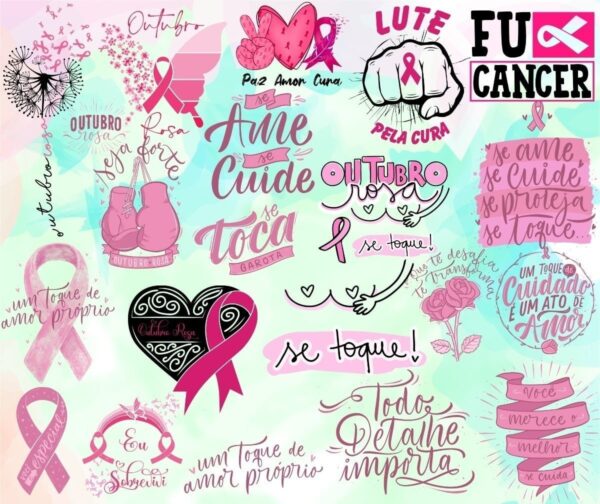 Outubro
Rosa
Paz Amor Cura
LUTE
PELA CURA
FU
CANCER
outubro rosa
OUTUBRO
rosa
seja forte
OUTUBRO ROSA
se
Ame
se
Cuide
se
toca
GAROTA
OUTUBRO
rosa
se toque!
se ame
se Cuide
se proteja
se Toque...
que te desafia
te transforma
UM TOQUE de
Cuidado
É UM ATO DE
Amor
um Toque de
amor próprio
Outubro Rosa
se toque!
especial
Eu
Sobrevivi
um Toque de
amor próprio
Todo
Detalhe
importa
Você
merece o
melhor.
se cuida